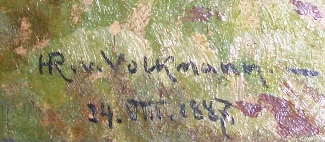 HR. v. Volkmann.
24. VIII. 1887.